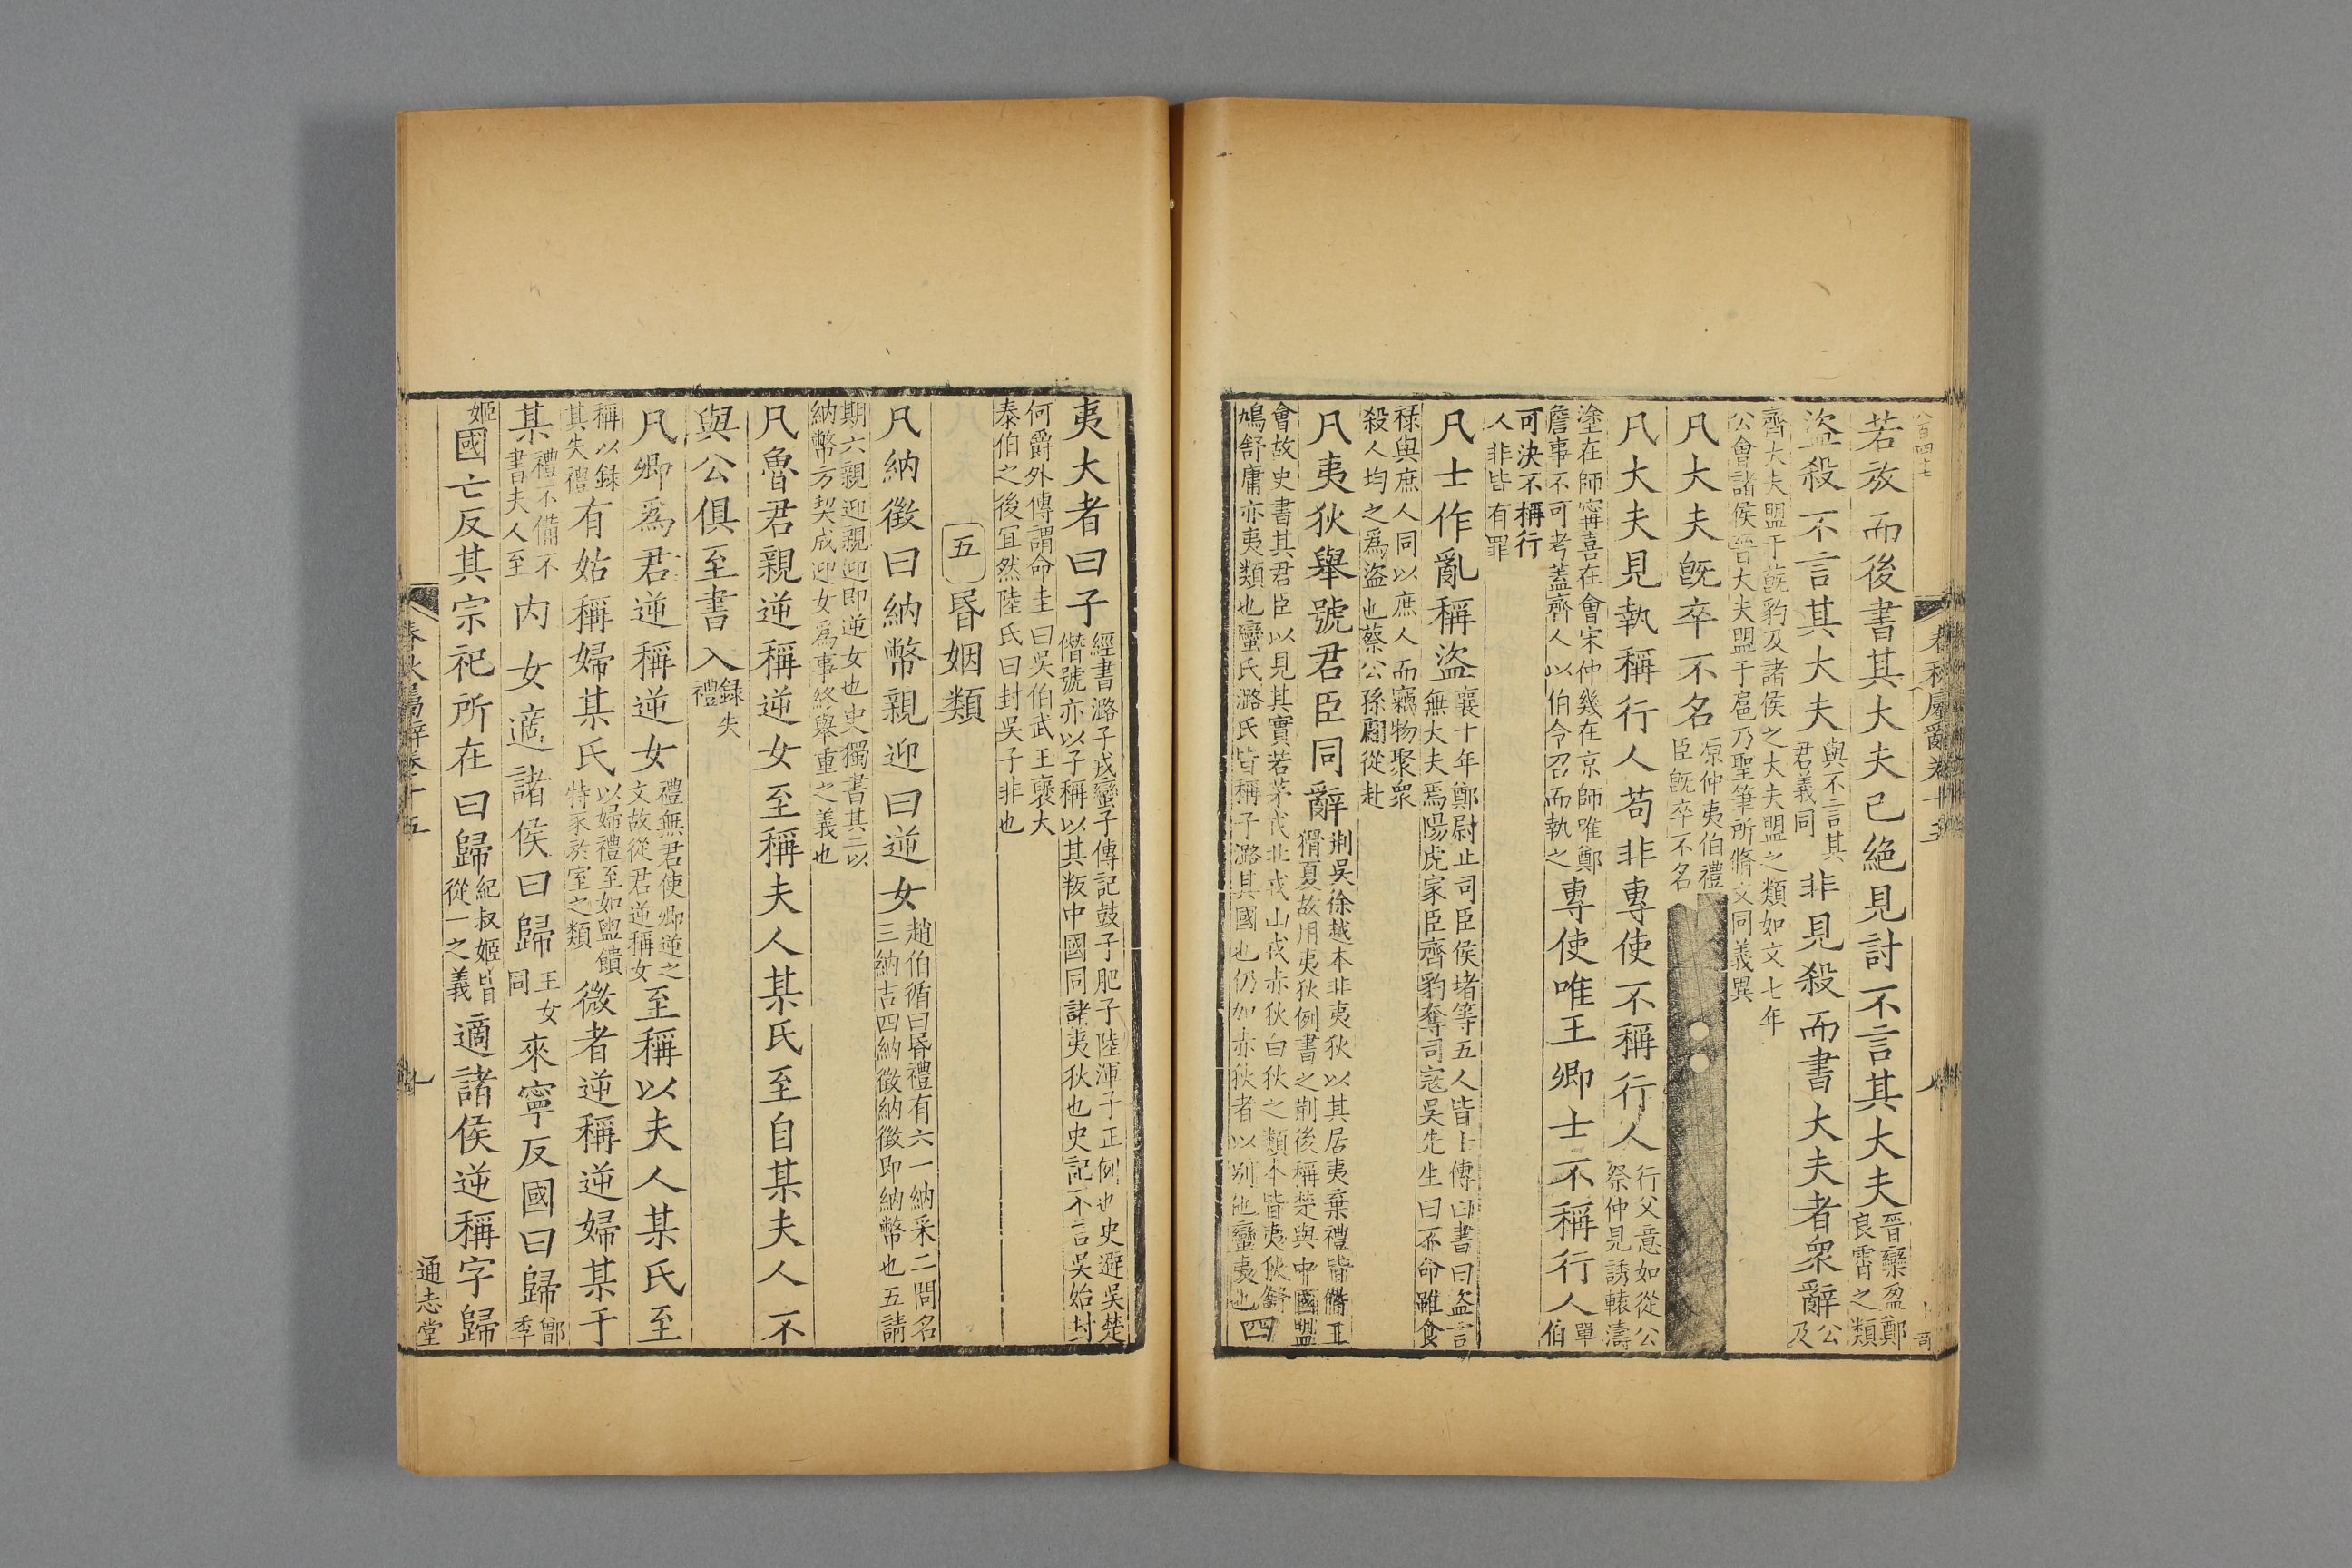 若放而後書其大夫已絶見討不言其大夫晉欒盈鄭良霄之類
盜殺不言其大夫與不言其君義同非見殺而書大夫者衆辭公及
齊大夫盟于蔇豹及諸侯之大夫盟之類如文七年公會諸侯晉大夫盟于扈乃聖筆所脩文同義異
凡大夫旣卒不名原仲夷伯禮臣旣卒不名
凡大夫見執稱行人苟非專使不稱行人行父意如從公祭仲見誘轅濤
塗在師甯喜在會宋仲幾在京師唯鄭詹事不可考蓋齊人以伯令召而執之專使唯王卿士不稱行人單伯
可決不稱行人非皆有罪
凡士作亂稱盜襄十年鄭尉止司臣侯堵等五人皆士傳曰書曰盜言無大夫焉陽虎家臣齊豹奪司寇吳先生曰不命雖食
祿與庶人同以庶人而竊物聚衆殺人均之爲盜也蔡公孫翩從赴
凡夷狄舉號君臣同辭荆吳徐越本非夷狄以其居夷棄禮皆僭王猾夏故用夷狄例書之荆後稱楚與中國盟
會故史書其君臣以見其實若茅戎北戎山戎赤狄白狄之類本皆夷狄舒鳩舒庸亦夷類也蠻氏潞氏皆稱子潞其國也仍加赤狄者以别也蠻夷也四
夷大者曰子經書潞子戎蠻子傳記鼓子肥子陸渾子正例也史避吳楚僭號亦以子稱以其叛中國同諸夷狄也史記不言吳始封
何爵外傳謂命圭曰吳伯武王褒大泰伯之後宜然陸氏曰封吳子非也
五昬姻類
凡納徵曰納幣親迎曰逆女趙伯循曰昬禮有六一納采二問名三納吉四納徵納徵即納幣也五請
期六親迎親迎即逆女也史獨書其二以納幣方契成迎女爲事終舉重之義也
凡魯君親逆稱逆女至稱夫人某氏至自某夫人不
與公俱至書入録失禮
凡卿爲君逆稱逆女禮無君使卿逆之文故從君逆稱女至稱以夫人某氏至
稱以録其失禮有姑稱婦某氏以婦禮至如盥饋特豕於室之類微者逆稱逆婦某于
某禮不備不書夫人至内女適諸侯曰歸王女同來寧反國曰歸鄫季
姬國亡反其宗祀所在曰歸紀叔姬皆從一之義適諸侯逆稱字歸
通志堂